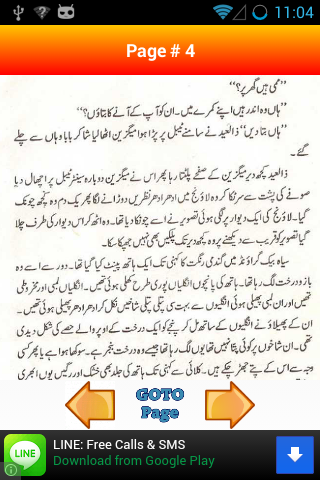 11:04
Page # 4
’’ممی ہیں گھر پر؟‘‘
’’ہاں وہ اندر ہیں اپنے کمرے میں۔ ان کو آپ کے آنے کا بتاؤں؟‘‘
’’ہاں بتا دیں‘‘ ذالعید نے سامنے ٹیبل پر پڑا ہوا میگزین اٹھا لیا شاکر بابا وہاں سے چلے
گئے۔
ذالعید کچھ دیر میگزین کے صفحے پلٹتا رہا پھر اس نے میگزین دوبارہ سینٹر ٹیبل پر اچھال دیا
صوفے کی پشت سے سر ٹکا کر وہ لاؤنج میں ادھر ادھر نظریں دوڑانے لگا پھر یک دم وہ کچھ چونک
گیا۔ لاؤنج کی ایک دیوار پر لگی ہوئی تصویر نے اسے چونکا دیا تھا۔ وہ اٹھ کر اس دیوار کی طرف چلا
گیا تصویر کو قریب سے دیکھنے پر وہ کچھ دیر تک پلکیں بھی نہیں جھپکا سکا۔
سیاہ بیک گراؤنڈ میں گندمی رنگت کا کہنی تک ایک ہاتھ پینٹ کیا گیا تھا۔ دور سے اسے وہ
بازو درخت لگ رہا تھا۔ ہاتھ کی پانچوں انگلیاں پوری طرح پھیلی ہوئی تھیں۔ انگلیاں لمبی اور مخروطی
تھیں اور ان لمبی پھیلی ہوئی انگلیوں سے بہت سی پتلی پتلی شاخیں نکل کر ادھر ادھر پھیل ہوئی تھیں۔
ان کے پھیلاؤ نے انگلیوں کے ساتھ مل کر پنجے کو ایک درخت کے اوپر والے حصے کی شکل دے دی
تھی۔ ان شاخوں پر کوئی پتا نہیں تھا یوں لگ رہا تھا جیسے وہ درخت بنجر ہے۔ سوکھا ہوا ہے یا پھر کسی
وجہ سے اس کے پتے جھڑ چکے ہیں۔ کلائی سے کہنی تک ہاتھ کی جلد بھی خشک اور رگیں یوں ابھری
GOTO
Page
LINE
LINE: Free Calls & SMS
Download from Google Play